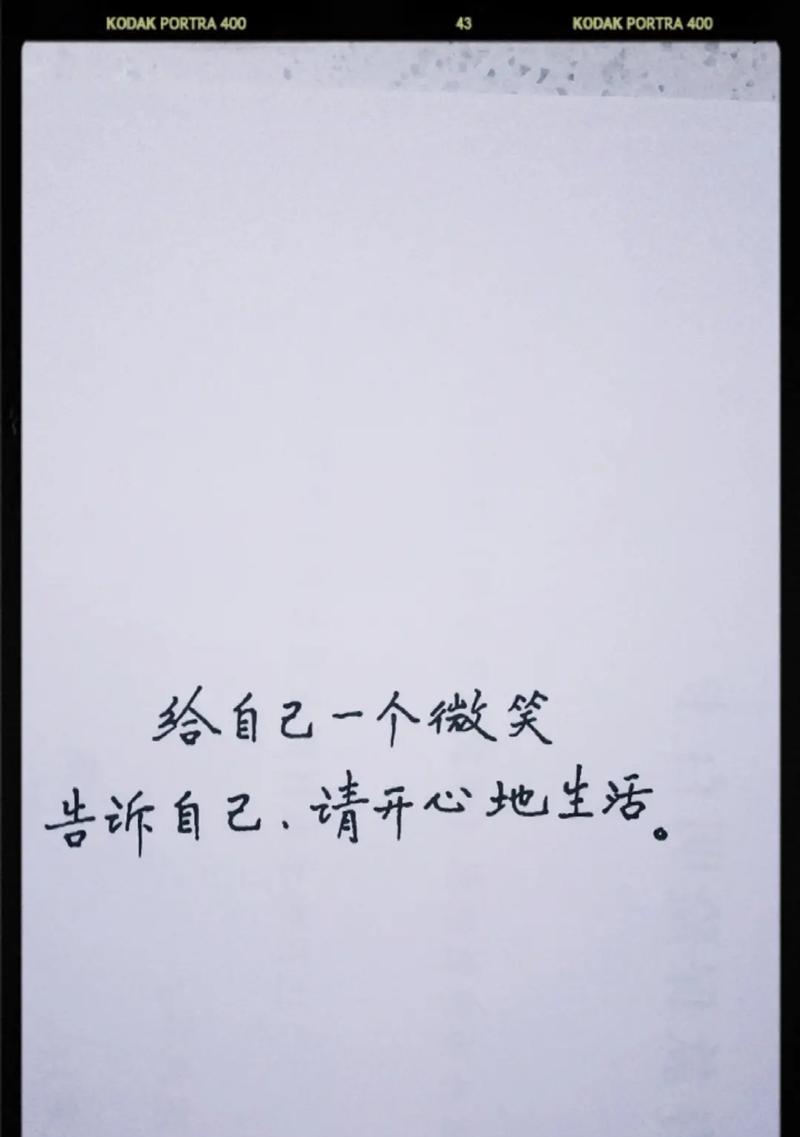 KODAK PORTRA 400 43 KODAK PORTRA 400
给自己一个微笑
告诉自己、请开心地生活。